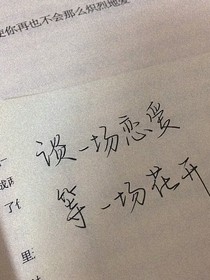 使你再也不会那么炽烈地爱
谈一场恋爱
等一场花开
里